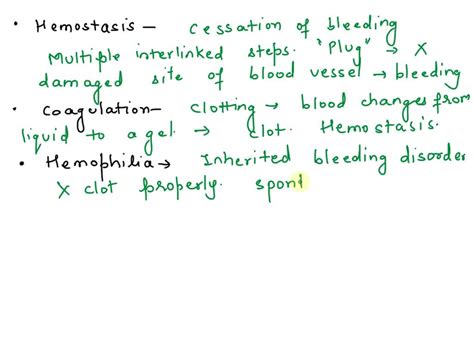 • Hemostasis – cessation of bleeding
Multiple interlinked steps. "Plug" → X
damaged site of blood vessel → bleeding
• Coagulation – clotting → blood changes from
liquid to a gel → clot. Hemostasis.
• Hemophilia → Inherited bleeding disorder
X clot properly. spont